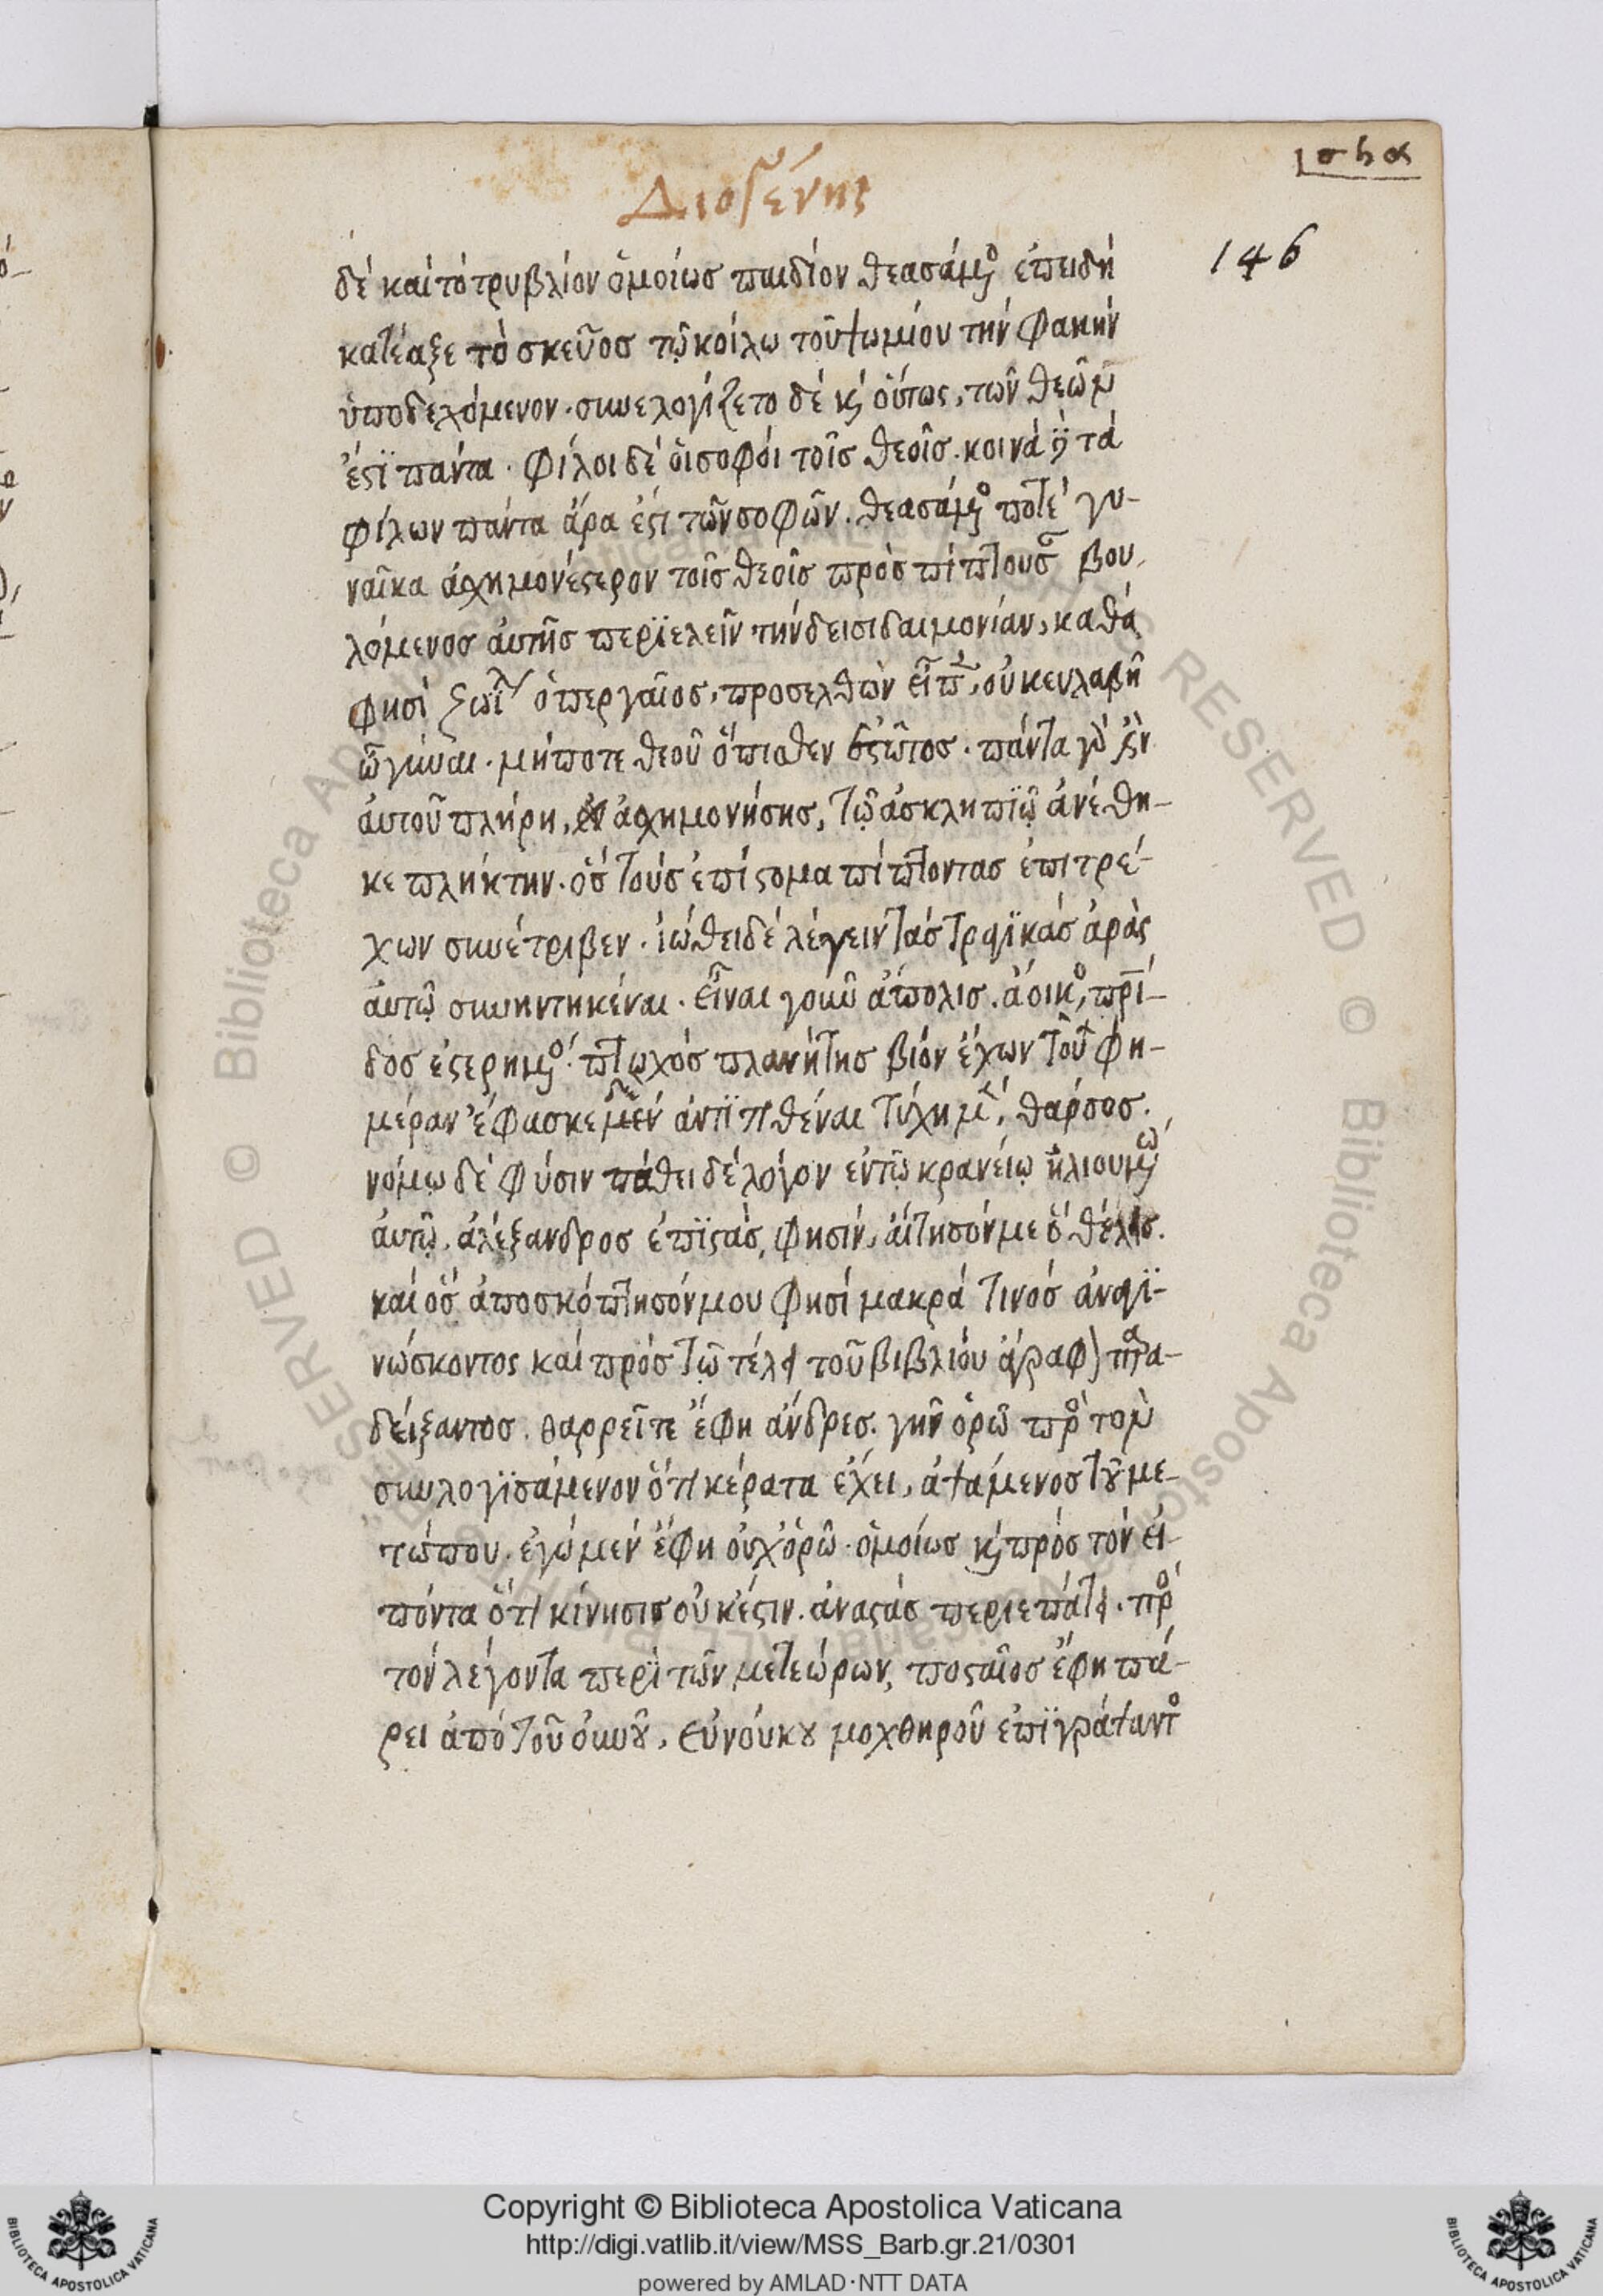 σϟα
Διογένης
146
δὲ καὶ τὸ τρυβλίον ὁμοίως παιδίον θεασάμενος ἐπειδὴ
κατέαξε τὸ σκεῦος τῷ κοίλω τοῦ ψωμίου τὴν φακὴν
ὑποδεχόμενον. συνελογίζετο δὲ καὶ οὕτως, τῶν θεῶν
ἐστὶ πάντα. φίλοι δὲ οἱ σοφοὶ τοῖς θεοῖς. κοινὰ δὲ τὰ
φίλων πάντα ἄρα ἐστὶ τῶν σοφῶν. θεασάμενος ποτὲ γυ-
ναῖκα ἀσχημονέστερον τοῖς θεοῖς προσπίπτουσαν βου-
λόμενος αὐτῆς περιελεῖν τὴν δεισιδαιμονίαν, καθά
φησὶ ζωΐλος ὁ περγαῖος, προσελθὼν εἶπεν, οὐκ εὐλαβῆ
ὦ γύναι. μήποτε θεοῦ ὄπισθεν ἑστῶτος. πάντα γάρ ἐστιν
αὐτοῦ πλήρη, ἀσχημονήσης, τῷ ἀσκληπιῷ ἀνέθη-
κε πλήκτην. ὃς τοὺς ἐπὶ στόμα πίπτοντας ἐπιτρέ-
χων συνέτριβεν. ἰώθει δὲ λέγειν τὰς τραγικὰς ἀρὰς
αὐτῷ συνηντηκέναι. εἶναι γοῦν ἄπολις. ἄοικος, πατρί-
δος ἐστερημένος. πτωχὸς πλανήτης βίον ἔχων τοὐφη-
μέραν ἔφασκε δὲ μὲν ἀντιτιθέναι τύχη μὲν, θάρσος.
νόμῳ δὲ φύσιν πάθει δὲ λόγον ἐν τῷ κρανείῳ ἡλιουμένω
αὐτῷ, ἀλέξανδρος ἐπιστὰς, φησὶν, αἴτησόν με ὃ θέλεις.
καὶ ὃς ἀποσκότησόν μου φησὶ μακρὰ τινὸς ἀναγι-
νώσκοντος καὶ πρὸς τῷ τέλει τοῦ βιβλίου ἄγραφον παρα-
δείξαντος. θαρρεῖτε ἔφη ἄνδρες. γῆν ὁρῶ πρὸς τὸν
συλλογισάμενον ὅτι κέρατα ἔχει, ἁψάμενος τοῦ με-
τώπου. ἐγὼ μὲν ἔφη οὐχ ὁρῶ. ὁμοίως καὶ πρὸς τὸν εἰ-
πόντα ὅτι κίνησις οὐκ ἔστιν. ἀναστὰς περιεπάτει. πρὸς
τὸν λέγοντα περὶ τῶν μετεώρων, ποσταῖος ἔφη πά-
ρει ἀπὸ τοῦ οὐνοῦ. εὐνούχου μοχθηροῦ ἐπιγράψαντος
Copyright © Biblioteca Apostolica Vaticana
http://digi.vatlib.it/view/MSS_Barb.gr.21/0301
powered by AMLAD·NTT DATA
BIBLIOTECA APOSTOLICA VATICANA
BIBLIOTECA APOSTOLICA VATICANA